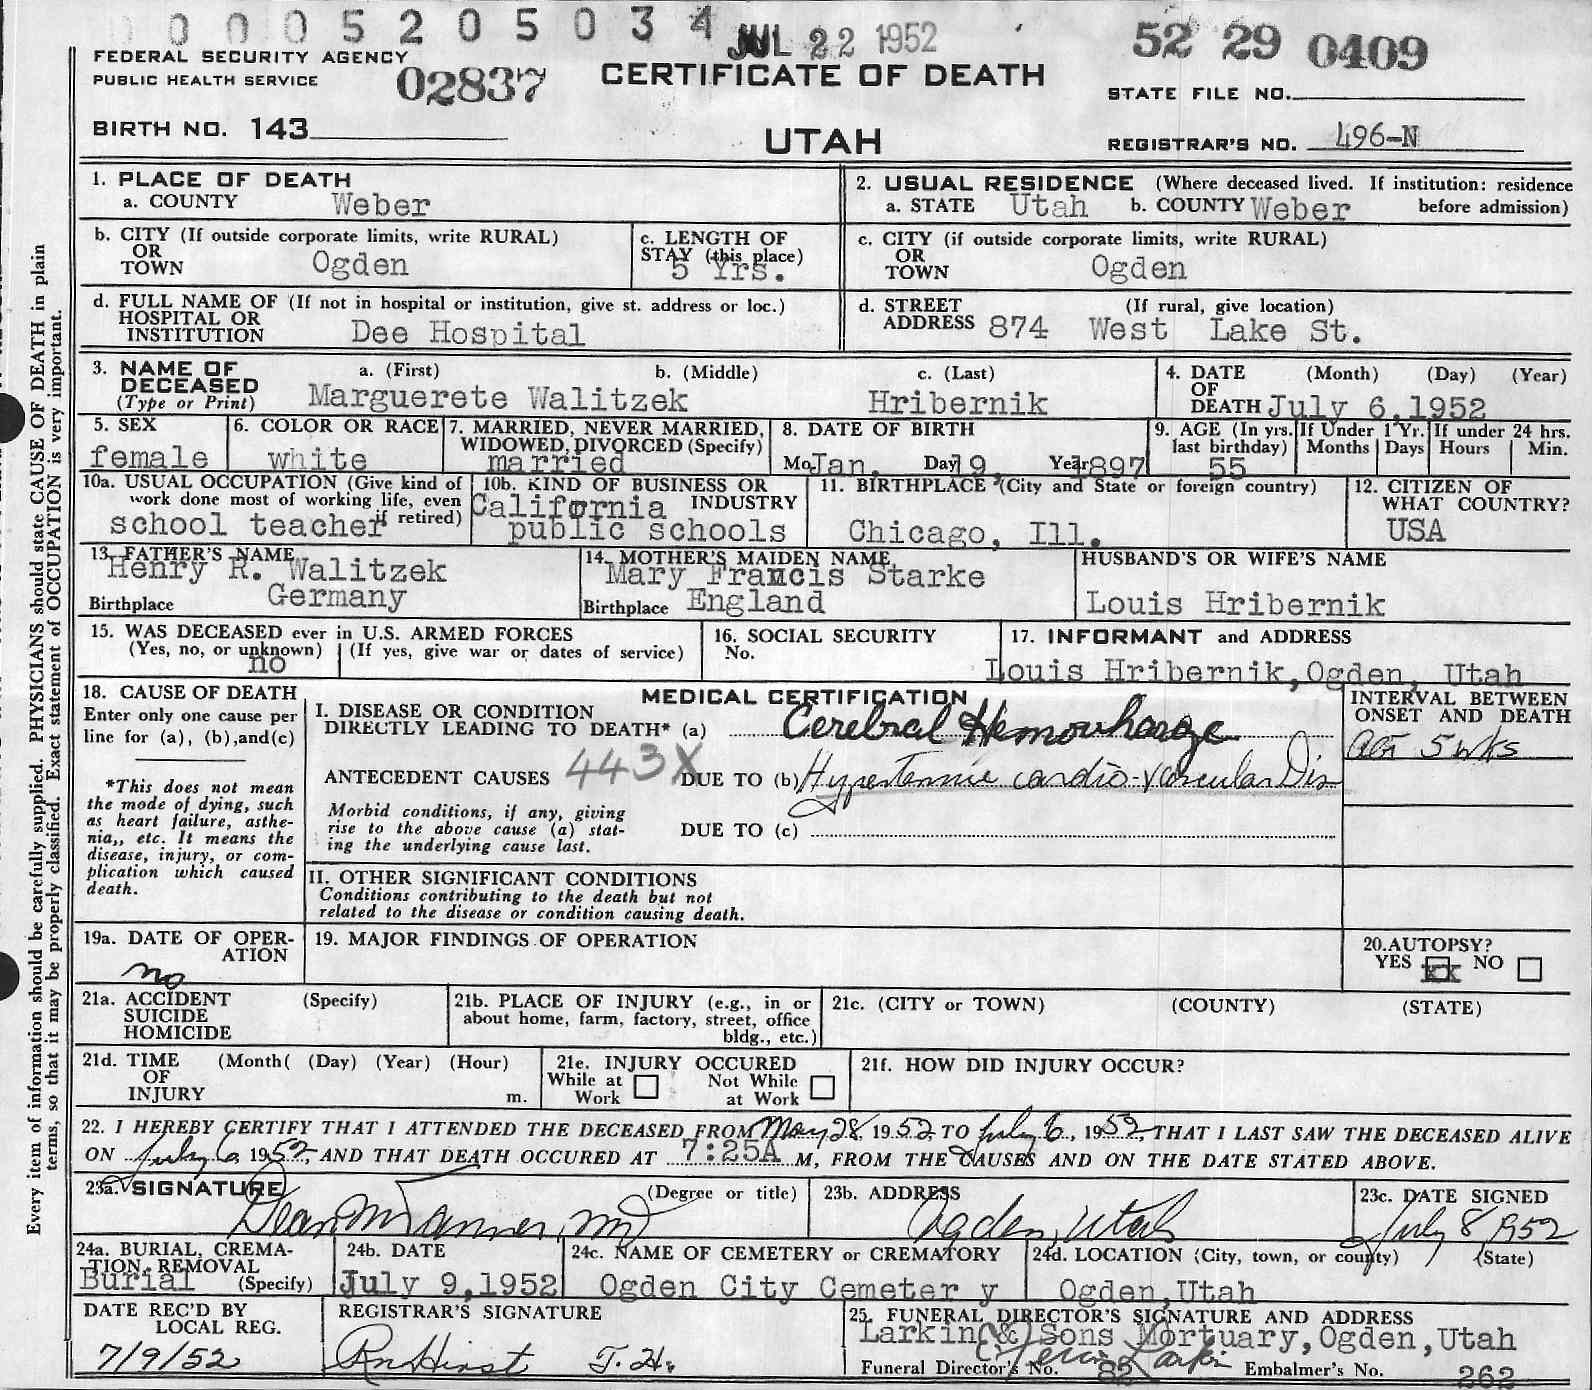 0 0 0 5 2 0 5 0 3 4 JUL 22 1952 52 29 0409
FEDERAL SECURITY AGENCY
PUBLIC HEALTH SERVICE 02837 CERTIFICATE OF DEATH STATE FILE NO.
BIRTH NO. 143 UTAH REGISTRAR'S NO. 496-N
Every item of information should be carefully supplied. PHYSICIANS should state CAUSE OF DEATH in plain
terms, so that it may be properly classified. Exact statement of OCCUPATION is very important.
1. PLACE OF DEATH
a. COUNTY Weber
2. USUAL RESIDENCE (Where deceased lived. If institution: residence
a. STATE Utah b. COUNTY Weber before admission)
b. CITY (If outside corporate limits, write RURAL)
OR
TOWN Ogden
c. LENGTH OF
STAY (this place)
5 Yrs.
c. CITY (if outside corporate limits, write RURAL)
OR
TOWN Ogden
d. FULL NAME OF (If not in hospital or institution, give st. address or loc.)
HOSPITAL OR
INSTITUTION Dee Hospital
d. STREET (If rural, give location)
ADDRESS 874 West Lake St.
3. NAME OF a. (First) b. (Middle) c. (Last)
DECEASED
(Type or Print) Marguerete Walitzek Hribernik
4. DATE (Month) (Day) (Year)
OF
DEATH July 6,1952
5. SEX
female
6. COLOR OR RACE
white
7. MARRIED, NEVER MARRIED,
WIDOWED, DIVORCED (Specify)
married
8. DATE OF BIRTH
Mo. Jan. Day 19, Year 1897
9. AGE (In yrs.
last birthday)
55
If Under 1 Yr.
Months Days
If under 24 hrs.
Hours Min.
10a. USUAL OCCUPATION (Give kind of
work done most of working life, even
if retired)
school teacher
10b. KIND OF BUSINESS OR
INDUSTRY
California
public schools
11. BIRTHPLACE (City and State or foreign country)
Chicago, Ill.
12. CITIZEN OF
WHAT COUNTRY?
USA
13. FATHER'S NAME
Henry R. Walitzek
Birthplace Germany
14. MOTHER'S MAIDEN NAME
Mary Francis Starke
Birthplace England
HUSBAND'S OR WIFE'S NAME
Louis Hribernik
15. WAS DECEASED ever in U.S. ARMED FORCES
(Yes, no, or unknown) (If yes, give war or dates of service)
no
16. SOCIAL SECURITY
No.
17. INFORMANT and ADDRESS
Louis Hribernik,Ogden, Utah
18. CAUSE OF DEATH
Enter only one cause per
line for (a), (b),and(c)
*This does not mean
the mode of dying, such
as heart failure, asthe-
nia,, etc. It means the
disease, injury, or com-
plication which caused
death.
MEDICAL CERTIFICATION
I. DISEASE OR CONDITION
DIRECTLY LEADING TO DEATH* (a) Cerebral Hemorrhage
ANTECEDENT CAUSES 443X DUE TO (b) Hypertensive cardio-vascular Dis
Morbid conditions, if any, giving
rise to the above cause (a) stat-
ing the underlying cause last.
DUE TO (c)
INTERVAL BETWEEN
ONSET AND DEATH
5 wks
II. OTHER SIGNIFICANT CONDITIONS
Conditions contributing to the death but not
related to the disease or condition causing death.
19a. DATE OF OPER-
ATION
no
19. MAJOR FINDINGS OF OPERATION
20.AUTOPSY?
YES xx NO
21a. ACCIDENT (Specify)
SUICIDE
HOMICIDE
21b. PLACE OF INJURY (e.g., in or
about home, farm, factory, street, office
bldg., etc.)
21c. (CITY or TOWN) (COUNTY) (STATE)
21d. TIME (Month( (Day) (Year) (Hour)
OF
INJURY m.
21e. INJURY OCCURED
While at Work Not While at Work
21f. HOW DID INJURY OCCUR?
22. I HEREBY CERTIFY THAT I ATTENDED THE DECEASED FROM May 28, 1952 TO July 6, 1952, THAT I LAST SAW THE DECEASED ALIVE
ON July 6, 1952, AND THAT DEATH OCCURED AT 7:25A M, FROM THE CAUSES AND ON THE DATE STATED ABOVE.
23a. SIGNATURE (Degree or title)
Dean M Tanner, MD
23b. ADDRESS
Ogden, Utah
23c. DATE SIGNED
July 8 1952
24a. BURIAL, CREMA-
TION, REMOVAL
(Specify)
Burial
24b. DATE
July 9,1952
24c. NAME OF CEMETERY or CREMATORY
Ogden City Cemeter y
24d. LOCATION (City, town, or county) (State)
Ogden,Utah
DATE REC'D BY
LOCAL REG.
7/9/52
REGISTRAR'S SIGNATURE
25. FUNERAL DIRECTOR'S SIGNATURE AND ADDRESS
Larkin & Sons Mortuary,Ogden,Utah
Funeral Director's No. 82 Embalmer's No. 262